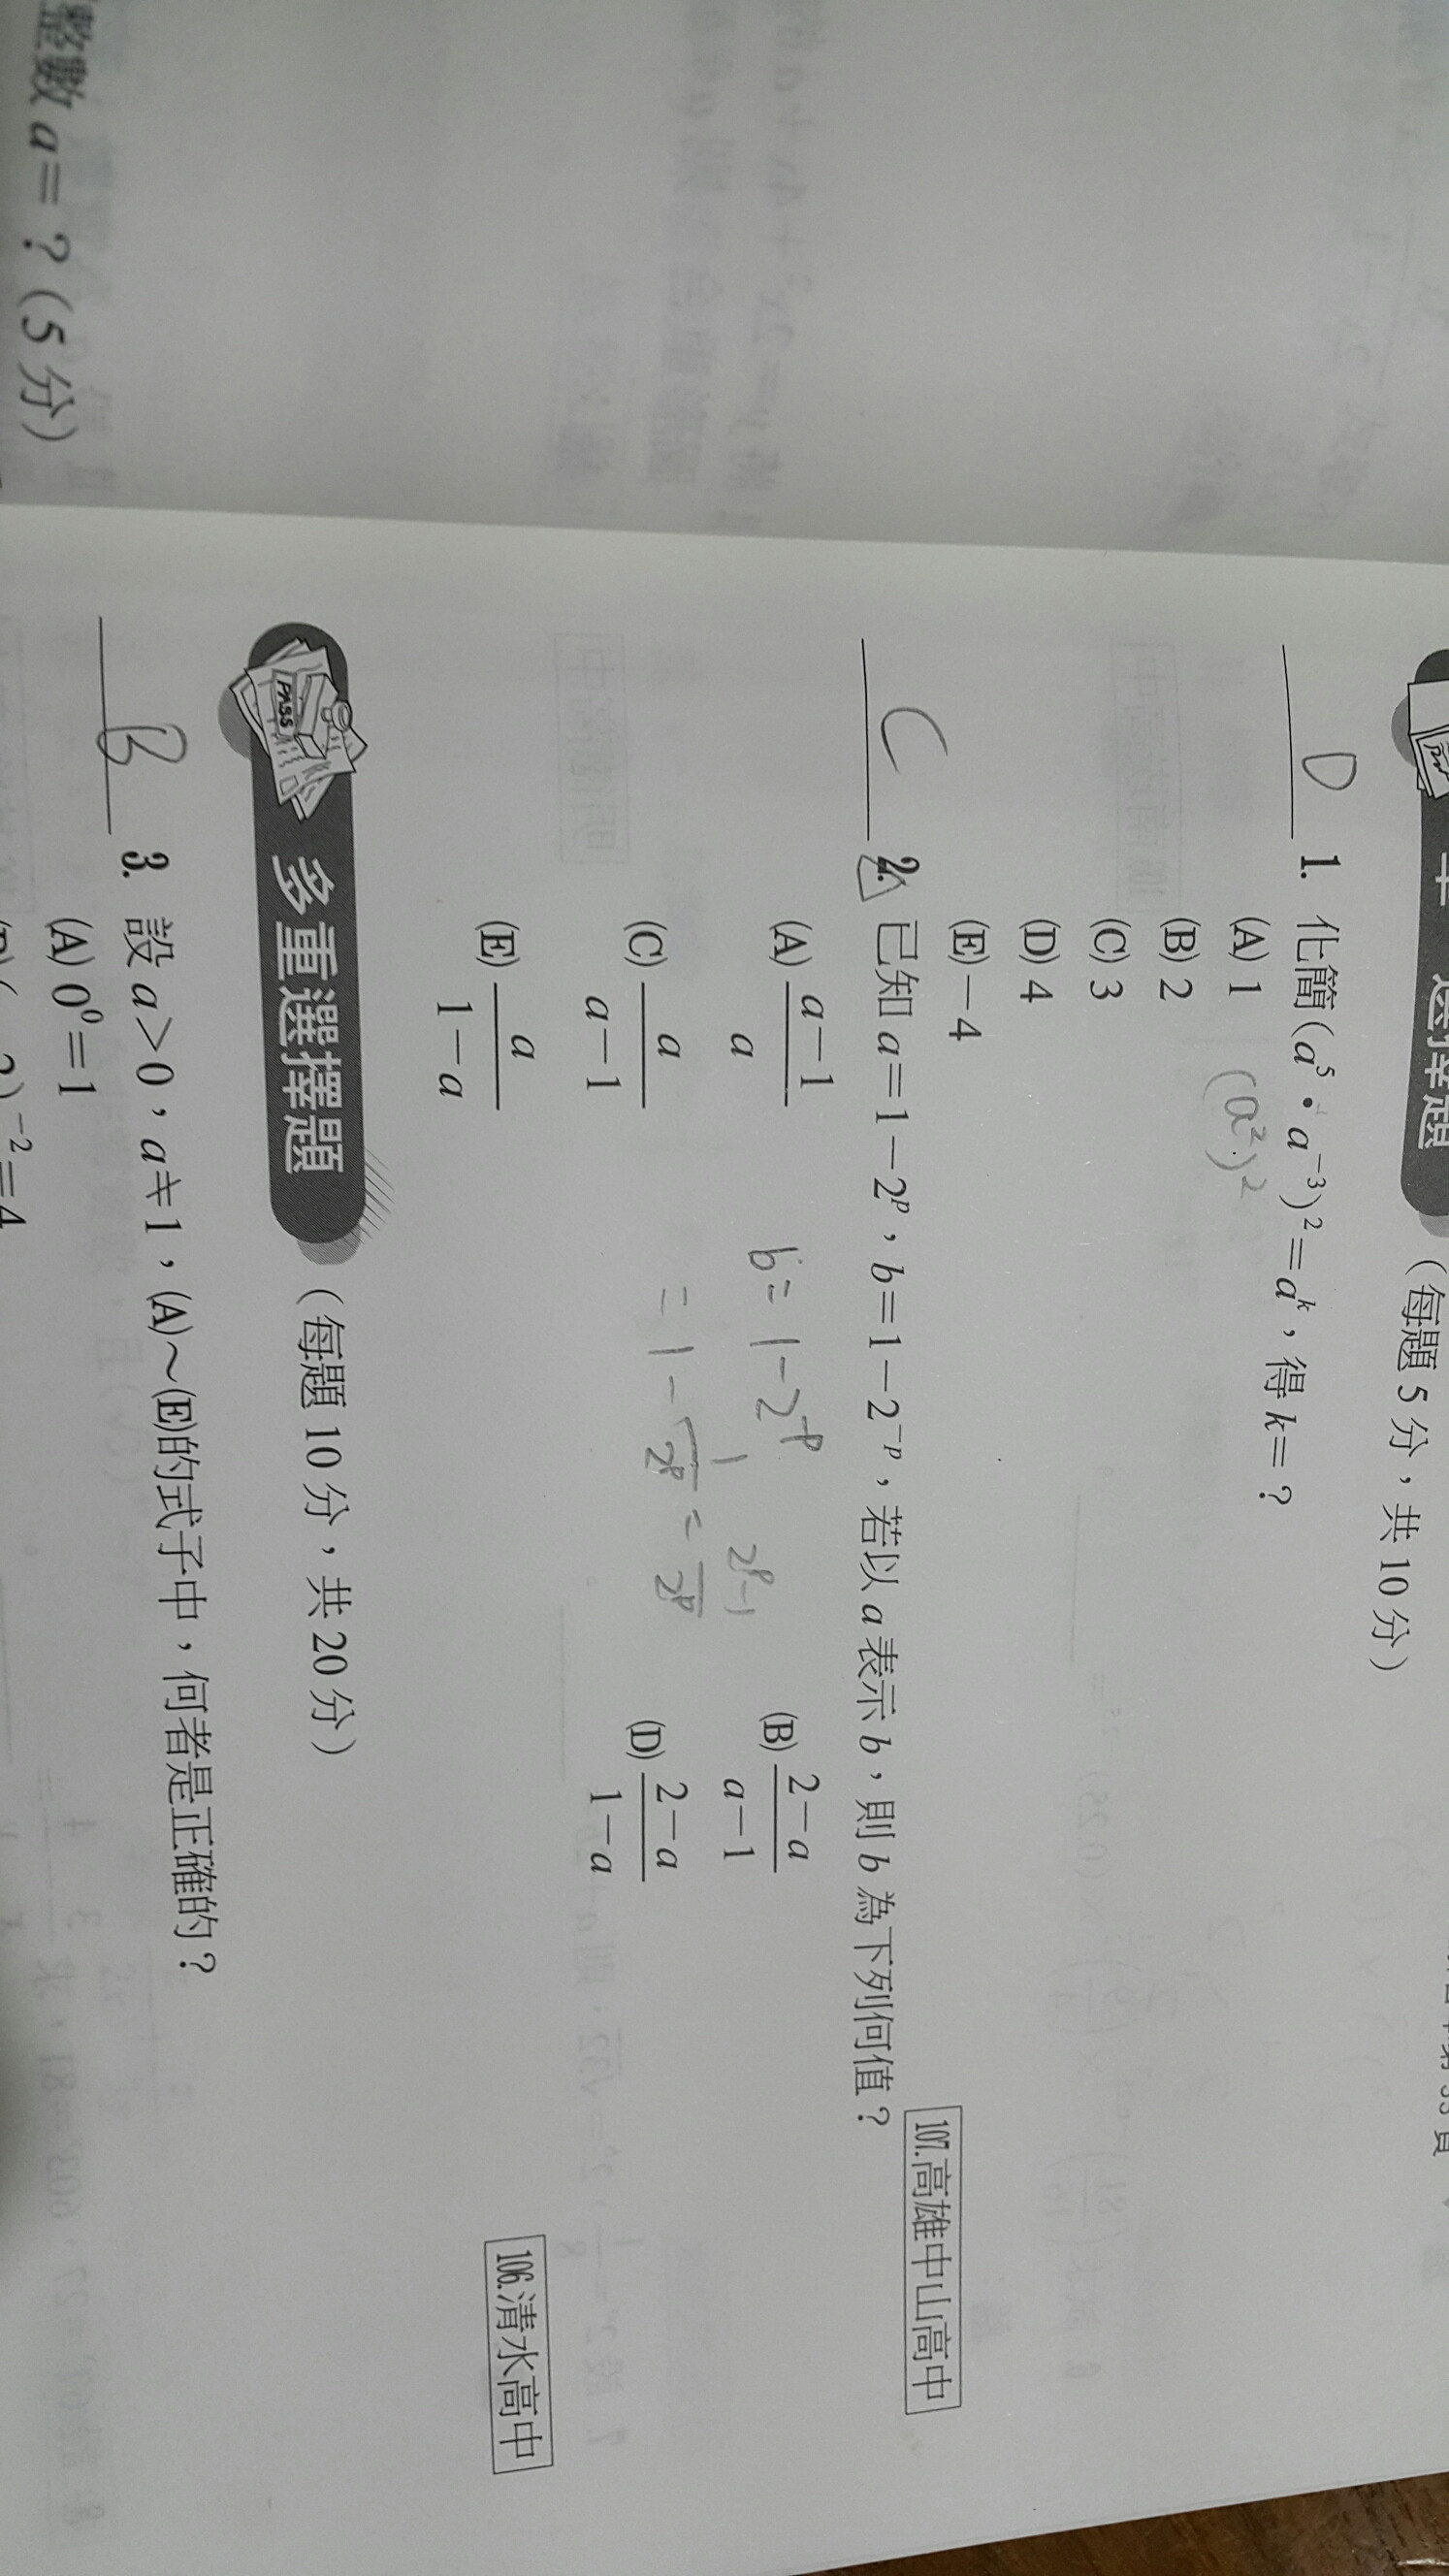 選擇題（每題5分，共10分）
D 1. 化簡(a⁵·a⁻³)²=aᵏ，得k=？
(A) 1
(a²)²
(B) 2
(C) 3
(D) 4
(E) －4
107.高雄中山高中
C 2. 已知a=1－2ᵖ，b=1－2⁻ᵖ，若以a表示b，則b為下列何值？
(A) a－1/a (B) 2－a/a－1
b=1-2⁻ᵖ
(C) a/a－1 (D) 2－a/1－a
=1-1/2ᵖ=2ᵖ-1/2ᵖ
(E) a/1－a
106.清水高中
PASS 多重選擇題（每題10分，共20分）
B 3. 設a>0，a≠1，(A)～(E)的式子中，何者是正確的？
(A) 0⁰=1
整數a=？(5分)